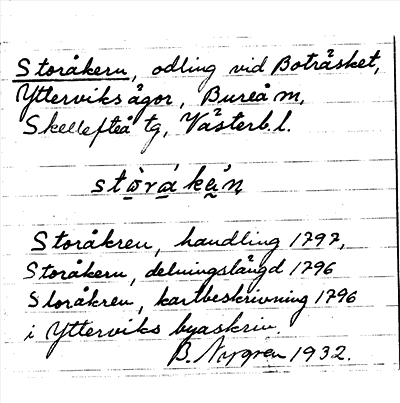 Storåkern, odling vid Boträsket,
Ytterviks ägor, Bureå m,
Skellefteå tg, Västerb. l.
stòrákán
Storåkren, handling 1797,
Storåkern, delningslängd 1796
Storåkren, kartbeskrivning 1796
i Ytterviks byaskrin.
B. Nygren 1932.